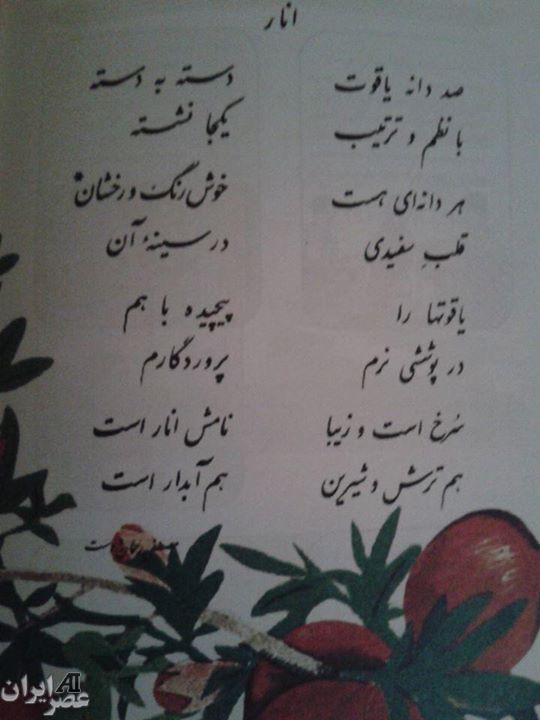 انار
صد دانه یاقوت دسته به دسته
با نظم و ترتیب یکجا نشسته
هر دانه‌ای هست خوش رنگ و رخشان*
قلبِ سفیدی در سینهٔ آن
یاقوتها را پیچیده با هم
در پوششی نرم پروردگارم
سُرخ است و زیبا نامش انار است
هم ترش و شیرین هم آبدار است
عصر ایران